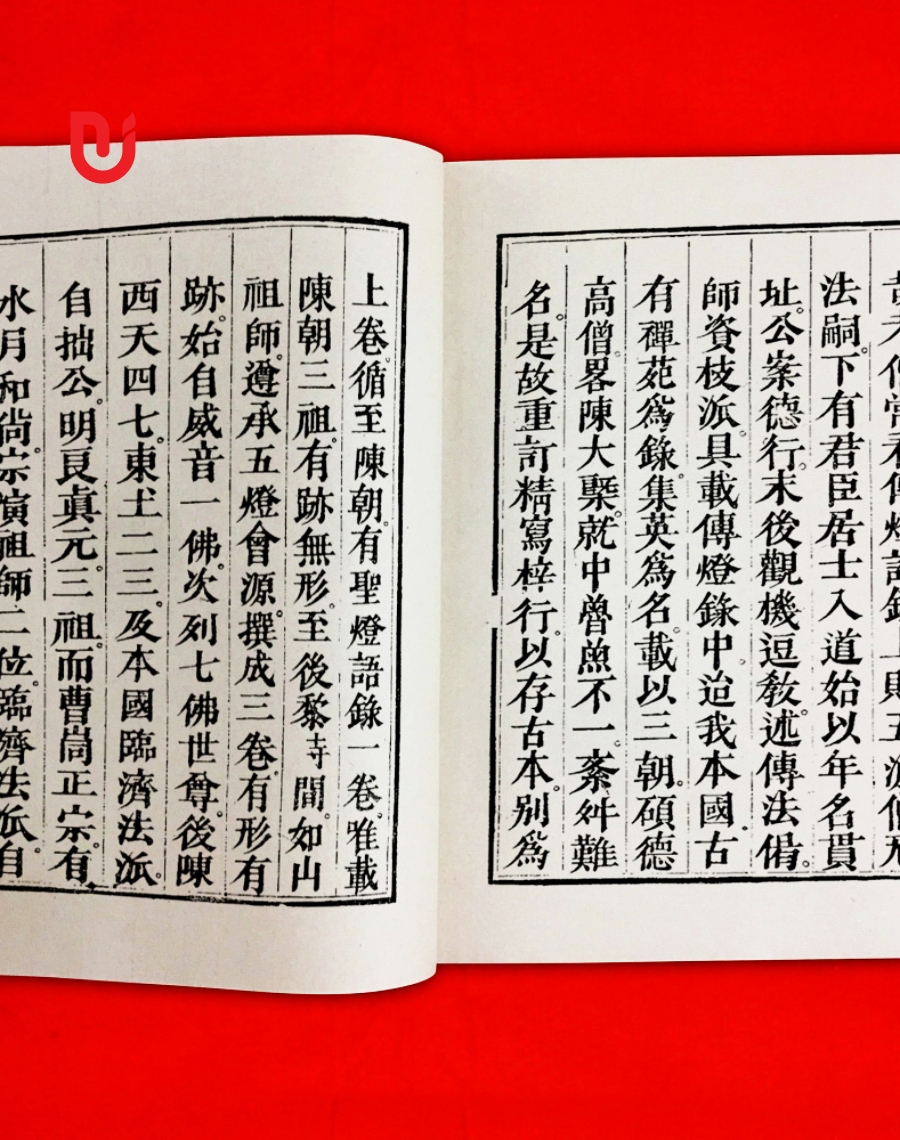 法嗣。下有君臣居士入道始以年名貫
址。公案德行。末後觀機逗教。述傳法偈。
師資枝派。具載傳燈錄中。迨我本國古
有禪苑爲錄。集英爲名。載以三朝。碩德
高僧。畧陳大槩。就中魯魚不一。紊舛難
名。是故重訂精寫梓行。以存古本。別爲
上卷。循至陳朝。有聖燈語錄一卷。唯載
陳朝三祖。有跡無形。至後黎寺間。如山
祖師。遵承五燈會源。撰成三卷。有形有
跡。始自威音一佛。次列七佛世尊。後陳
西天四七。東土二三。及本國臨濟法派。
自拙公。明良眞元。三祖。而曹峝正宗。有
水月和尙。宗演祖師二位。臨濟法派。自